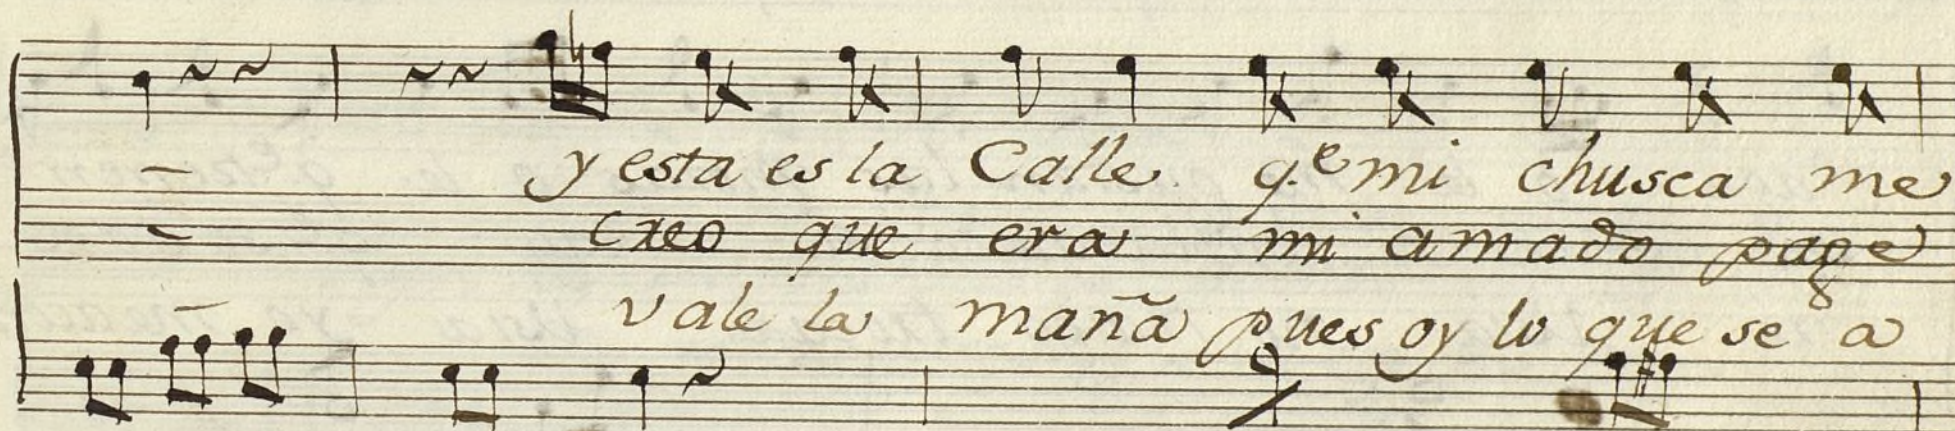 y esta es la Calle q.e mi chusca me
creo que era mi amado page
vale la maña pues oy lo que se a